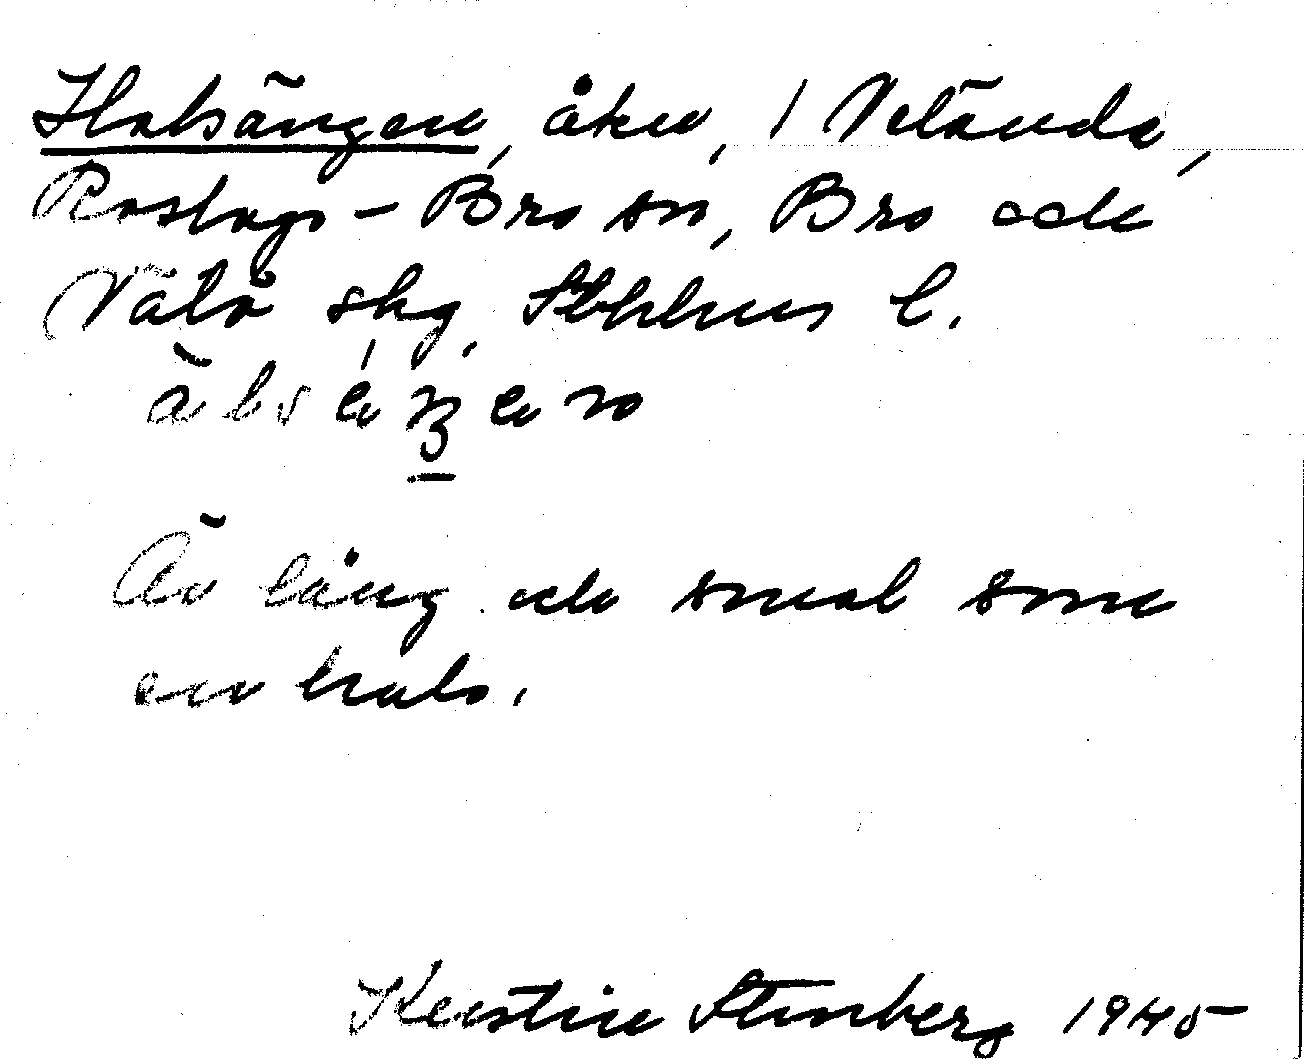 Halsängen, åker, / Veländа,
Roslags-Bro sn, Bro och
Vätö skg, Sthlms l.
Är lång och smal som
en hals.
Kerstin Stenberg 1945